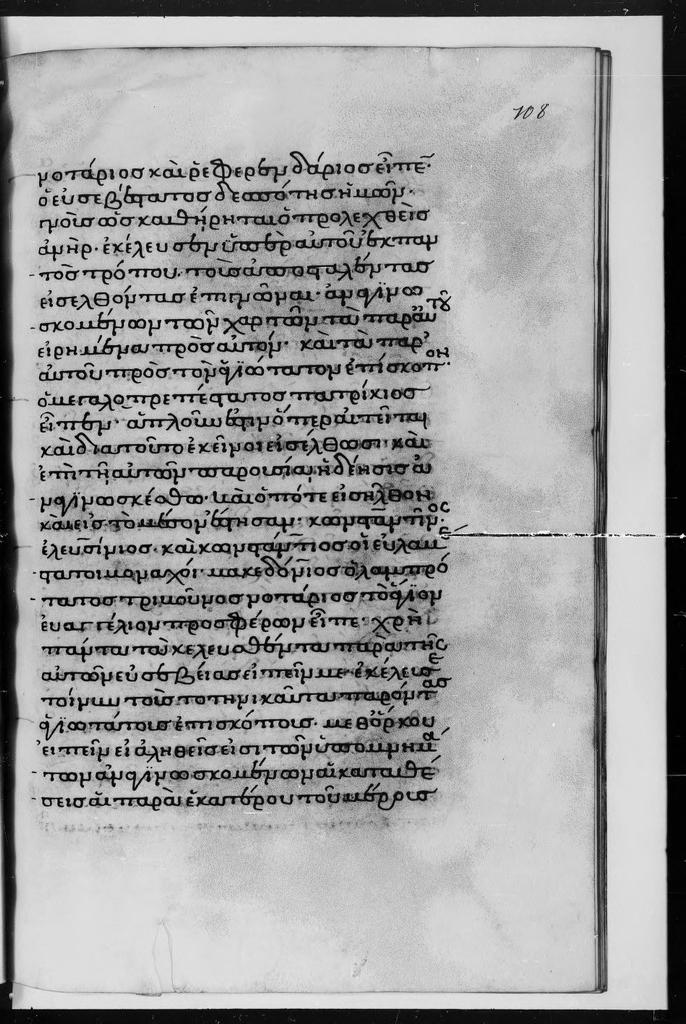 108
νοτάριος καὶ ῥεφερενδάριος εἶπεν
ὁ εὐσεβέστατος δεσπότης ἡμῶν.
τοῖς ὡς καὶ ὁ προλεχθεὶς
ἀνὴρ. ἐκέλευσεν ὑπὲρ αὐτοῦ ἐκ παν
τὸς τρόπου. τοὺς ἀποσταλέντας
εἰσελθόντας ἐπιγνῶναι. ἀναγινω
σκομένων τῶν χαρτῶν τὰ παρ' αὐτοῦ
εἰρημένα πρὸς αὐτόν. καὶ τὰ παρ'
αὐτοῦ πρὸς τὸν ἁγιώτατον ἐπίσκοπον.
ὁ μεγαλοπρεπέστατος πατρίκιος
εἶπεν. ἁπλοῦν ἐστιν ὅπερ αἰτεῖται
καὶ διὰ τοῦτο ἐκεῖνοι εἰσέλθωσι. καὶ
ἐπὶ τῇ αὐτῶν παρουσίᾳ ἡ δέησις ἀ
ναγινωσκέσθω. καὶ ὁπότε εἰσῆλθον
καὶ εἰς τὸ μέσον ἔστησαν. κωνσταντῖνος.
ἐλευσίνιος. καὶ κωνστάντιος οἱ εὐλαβέσ
τατοι μοναχοί. μακεδόνιος ὁ λαμπρό
τατος τριβοῦνος νοτάριος τὸ ἅγιον
εὐαγγέλιον προσφέρων εἶπε. χρὴ
πάντα τὰ κελευσθέντα παρὰ τῆς
αὐτῶν εὐσεβείας εἰπεῖν με. ἐκέλευσε
τοίνυν τοῖς τηνικαῦτα παρόντας
ἁγιωτάτοις ἐπισκόποις. μεθ' ὅρκου
εἰπεῖν εἰ ἀληθεῖς εἰσι τῶν ὑπομνημά
των ἀναγινωσκομένων αἱ καταθέ
σεις αἱ παρὰ ἑκατέρου τοῦ μέρους